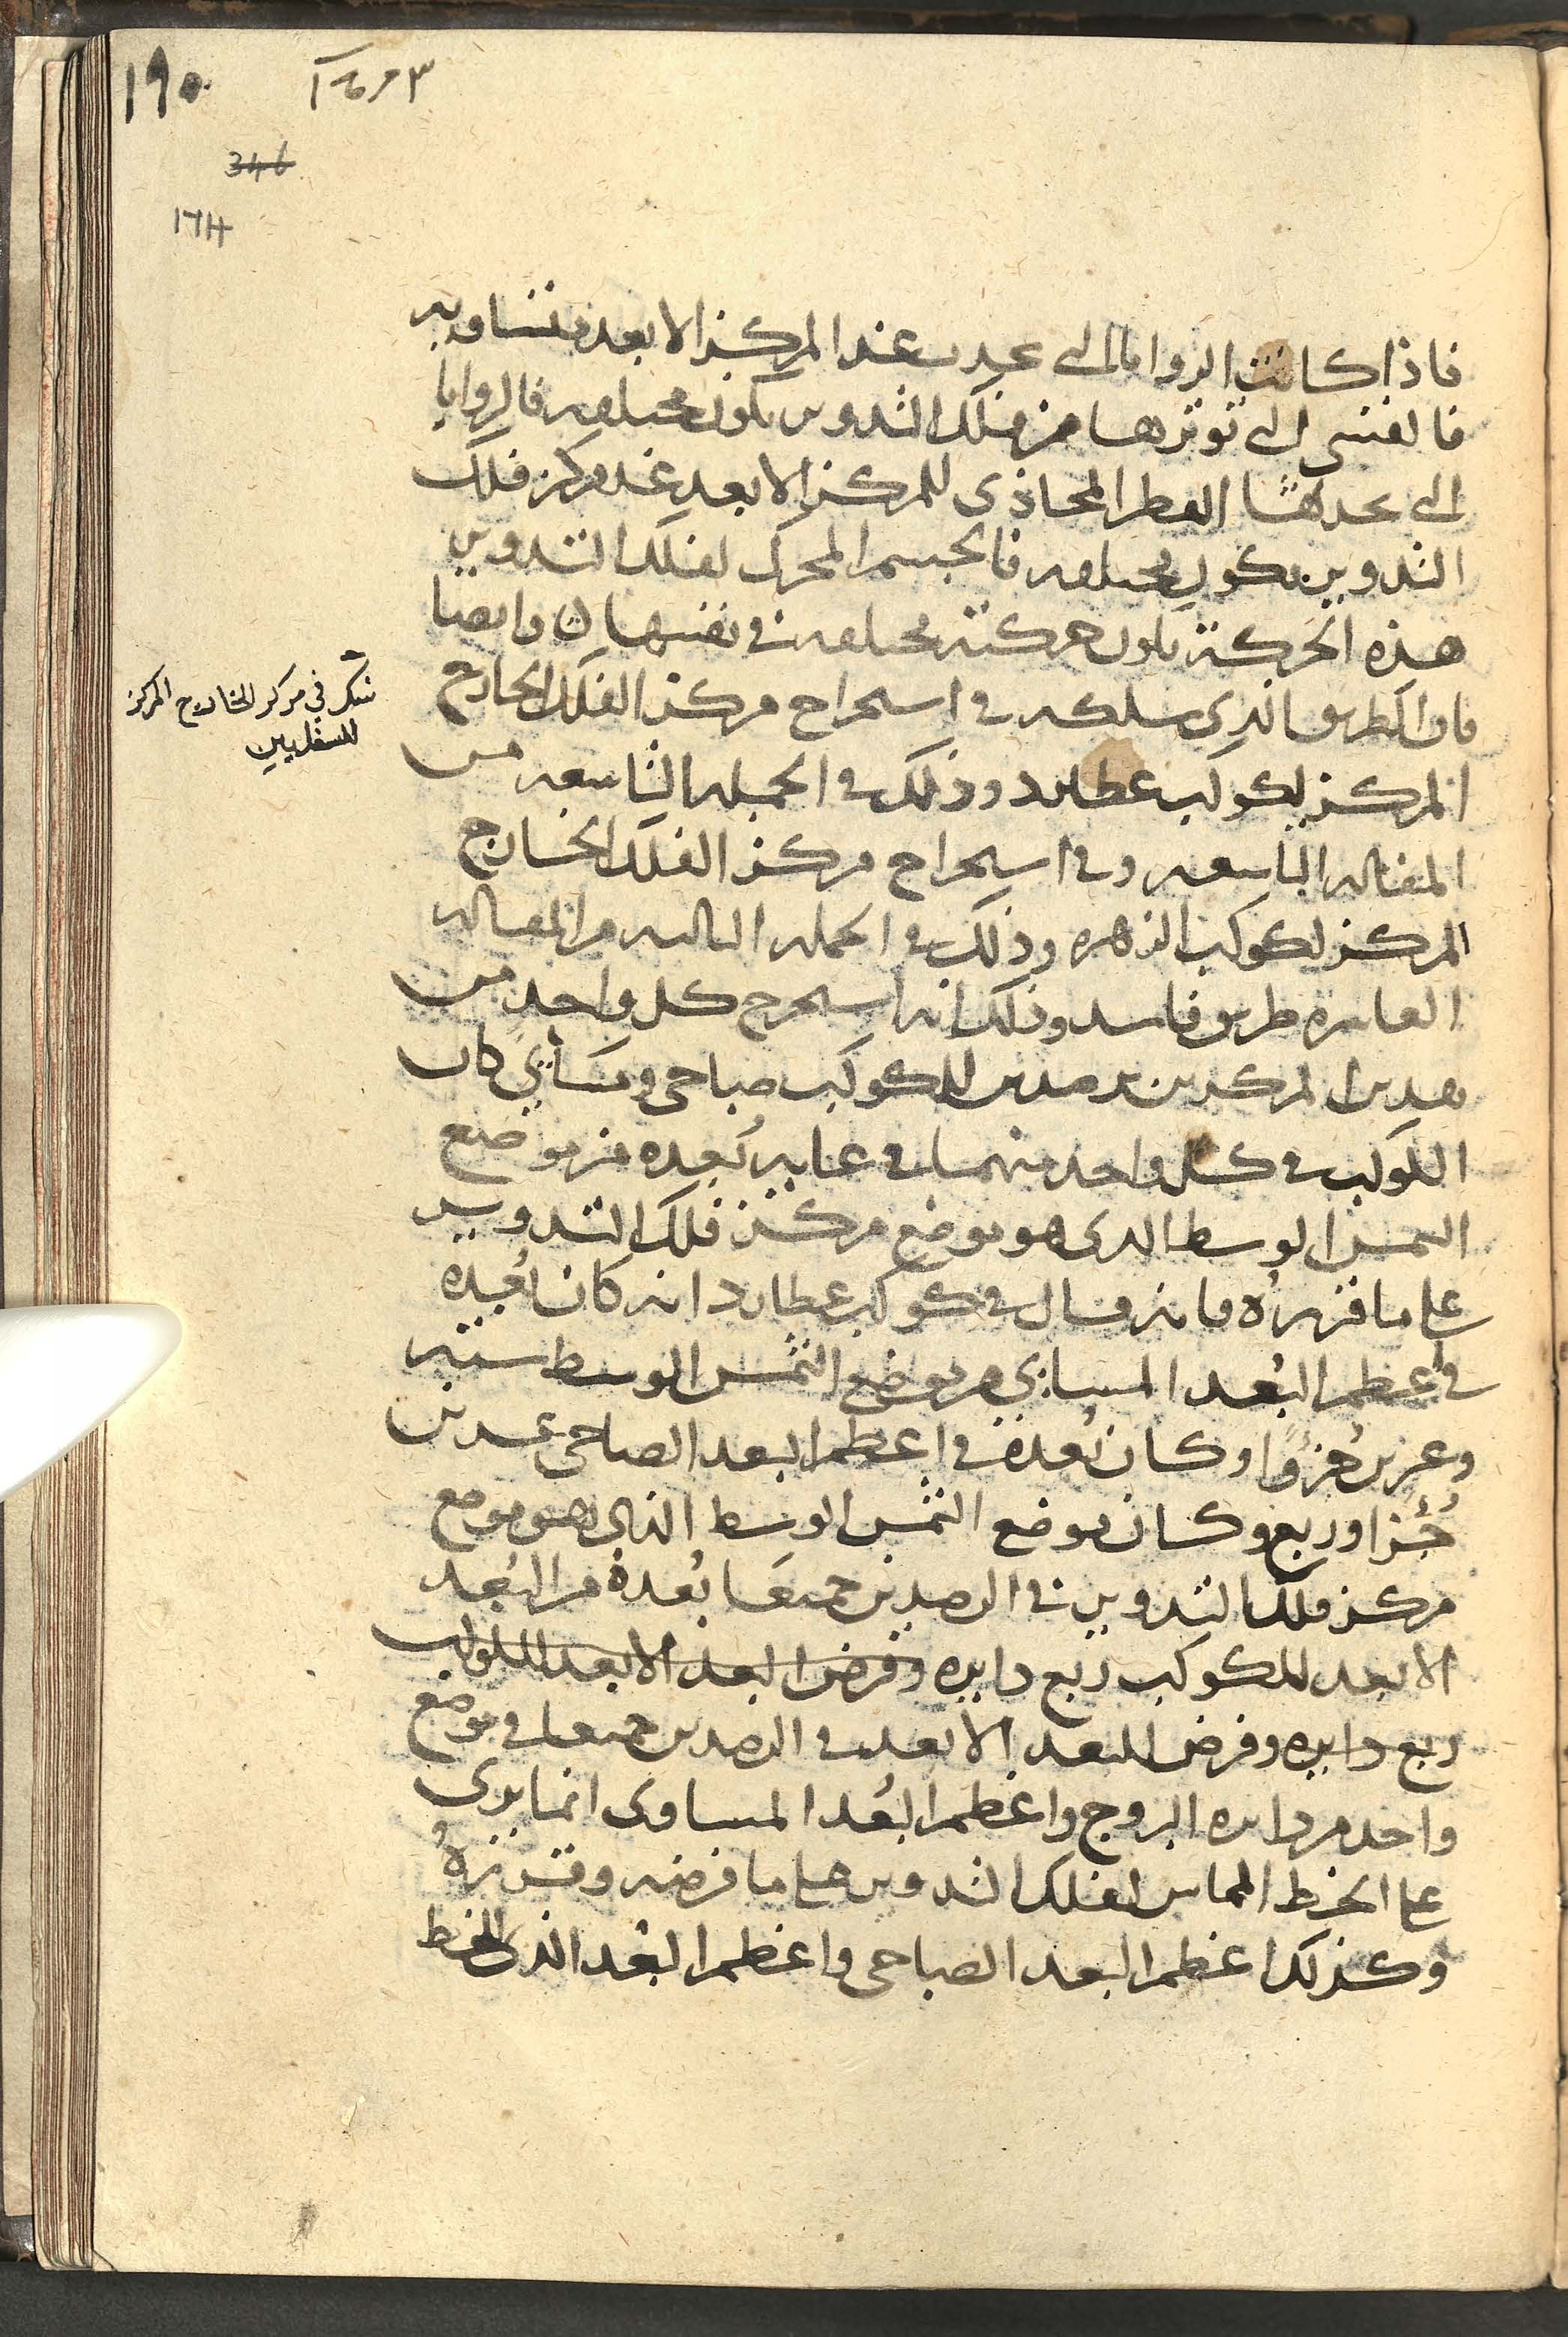 ١٩٠
٣ م ٦ ١
346
174
فاذا كانت الزوايا التى تحدث عند المركز الابعد متساويه
فالقسى التى توترها من فلك التدوير تكون مختلفه فالزوايا
التى يحدثها القطر المحاذى للمركز الابعد عند مركز فلك
التدوير يكون مختلفه فالجسم المحرك لفلك التدوير
هذه الحركة تكون حركته مختلفه فى نفسها وايضا
فان الطريق الذى سلكه فى استخراج مركز الفلك الخارج
المركز لكوكب عطارد وذلك فى الجملة التاسعه من
المقاله التاسعه وفى استخراج مركز الفلك الخارج
المركز لكوكب الزهره وذلك فى الجمله الثالثه من المقاله
العاشره طريق فاسد وذلك انه استخرج كل واحد من
هذين المركزين برصدين للكوكب صباحى ومسائي كان
الكوكب فى كل واحد منهما فى غايه بُعده من موضع
الشمس الوسط الذى هو موضع مركز فلك التدوير
على ما قرره فانه قال فى كوكب عطارد انه كان بُعده
فى اعظم البُعد المسايى من موضع الشمس الوسط سته
وعشرين جُزوًا وكان بُعده فى اعظم البعد الصباحى عشرين
جُزءا وربع وكان موضع الشمس الوسط الذى هو موضع
مركز فلك التدوير فى الرصدين جميعًا بُعده من البُعد
الابعد للكوكب ربع دايره وفرض البعد الابعد للكوكب
ربع دايره وفرض البعد الابعد فى الرصدين جميعا فى موضع
واحد من دايره البروج واعظم البُعد المساوى انما يرى
على الخط المماس لفلك التدوير على ما فرضه وقرره
وكذلك اعظم البعد الصباحى واعظم البُعد الذى الخط
شك فى مركز الخارج المركز
للسفليين